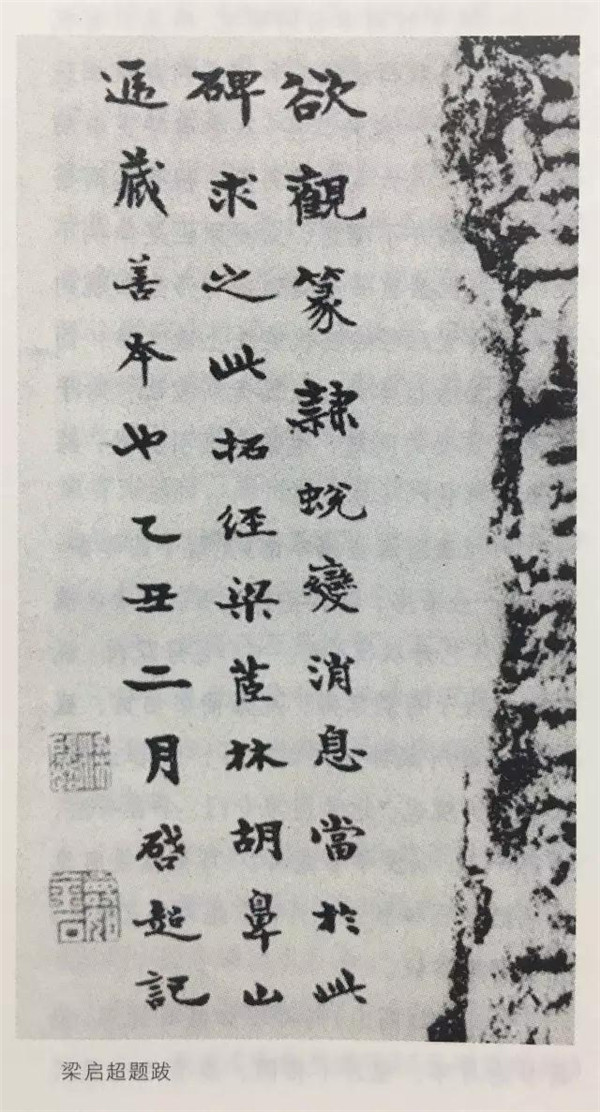 欲觀篆隸蛻變消息當於此
碑求之此拓經梁茝林胡鼻山
遞藏善本也乙丑二月啓超記
梁启超题跋